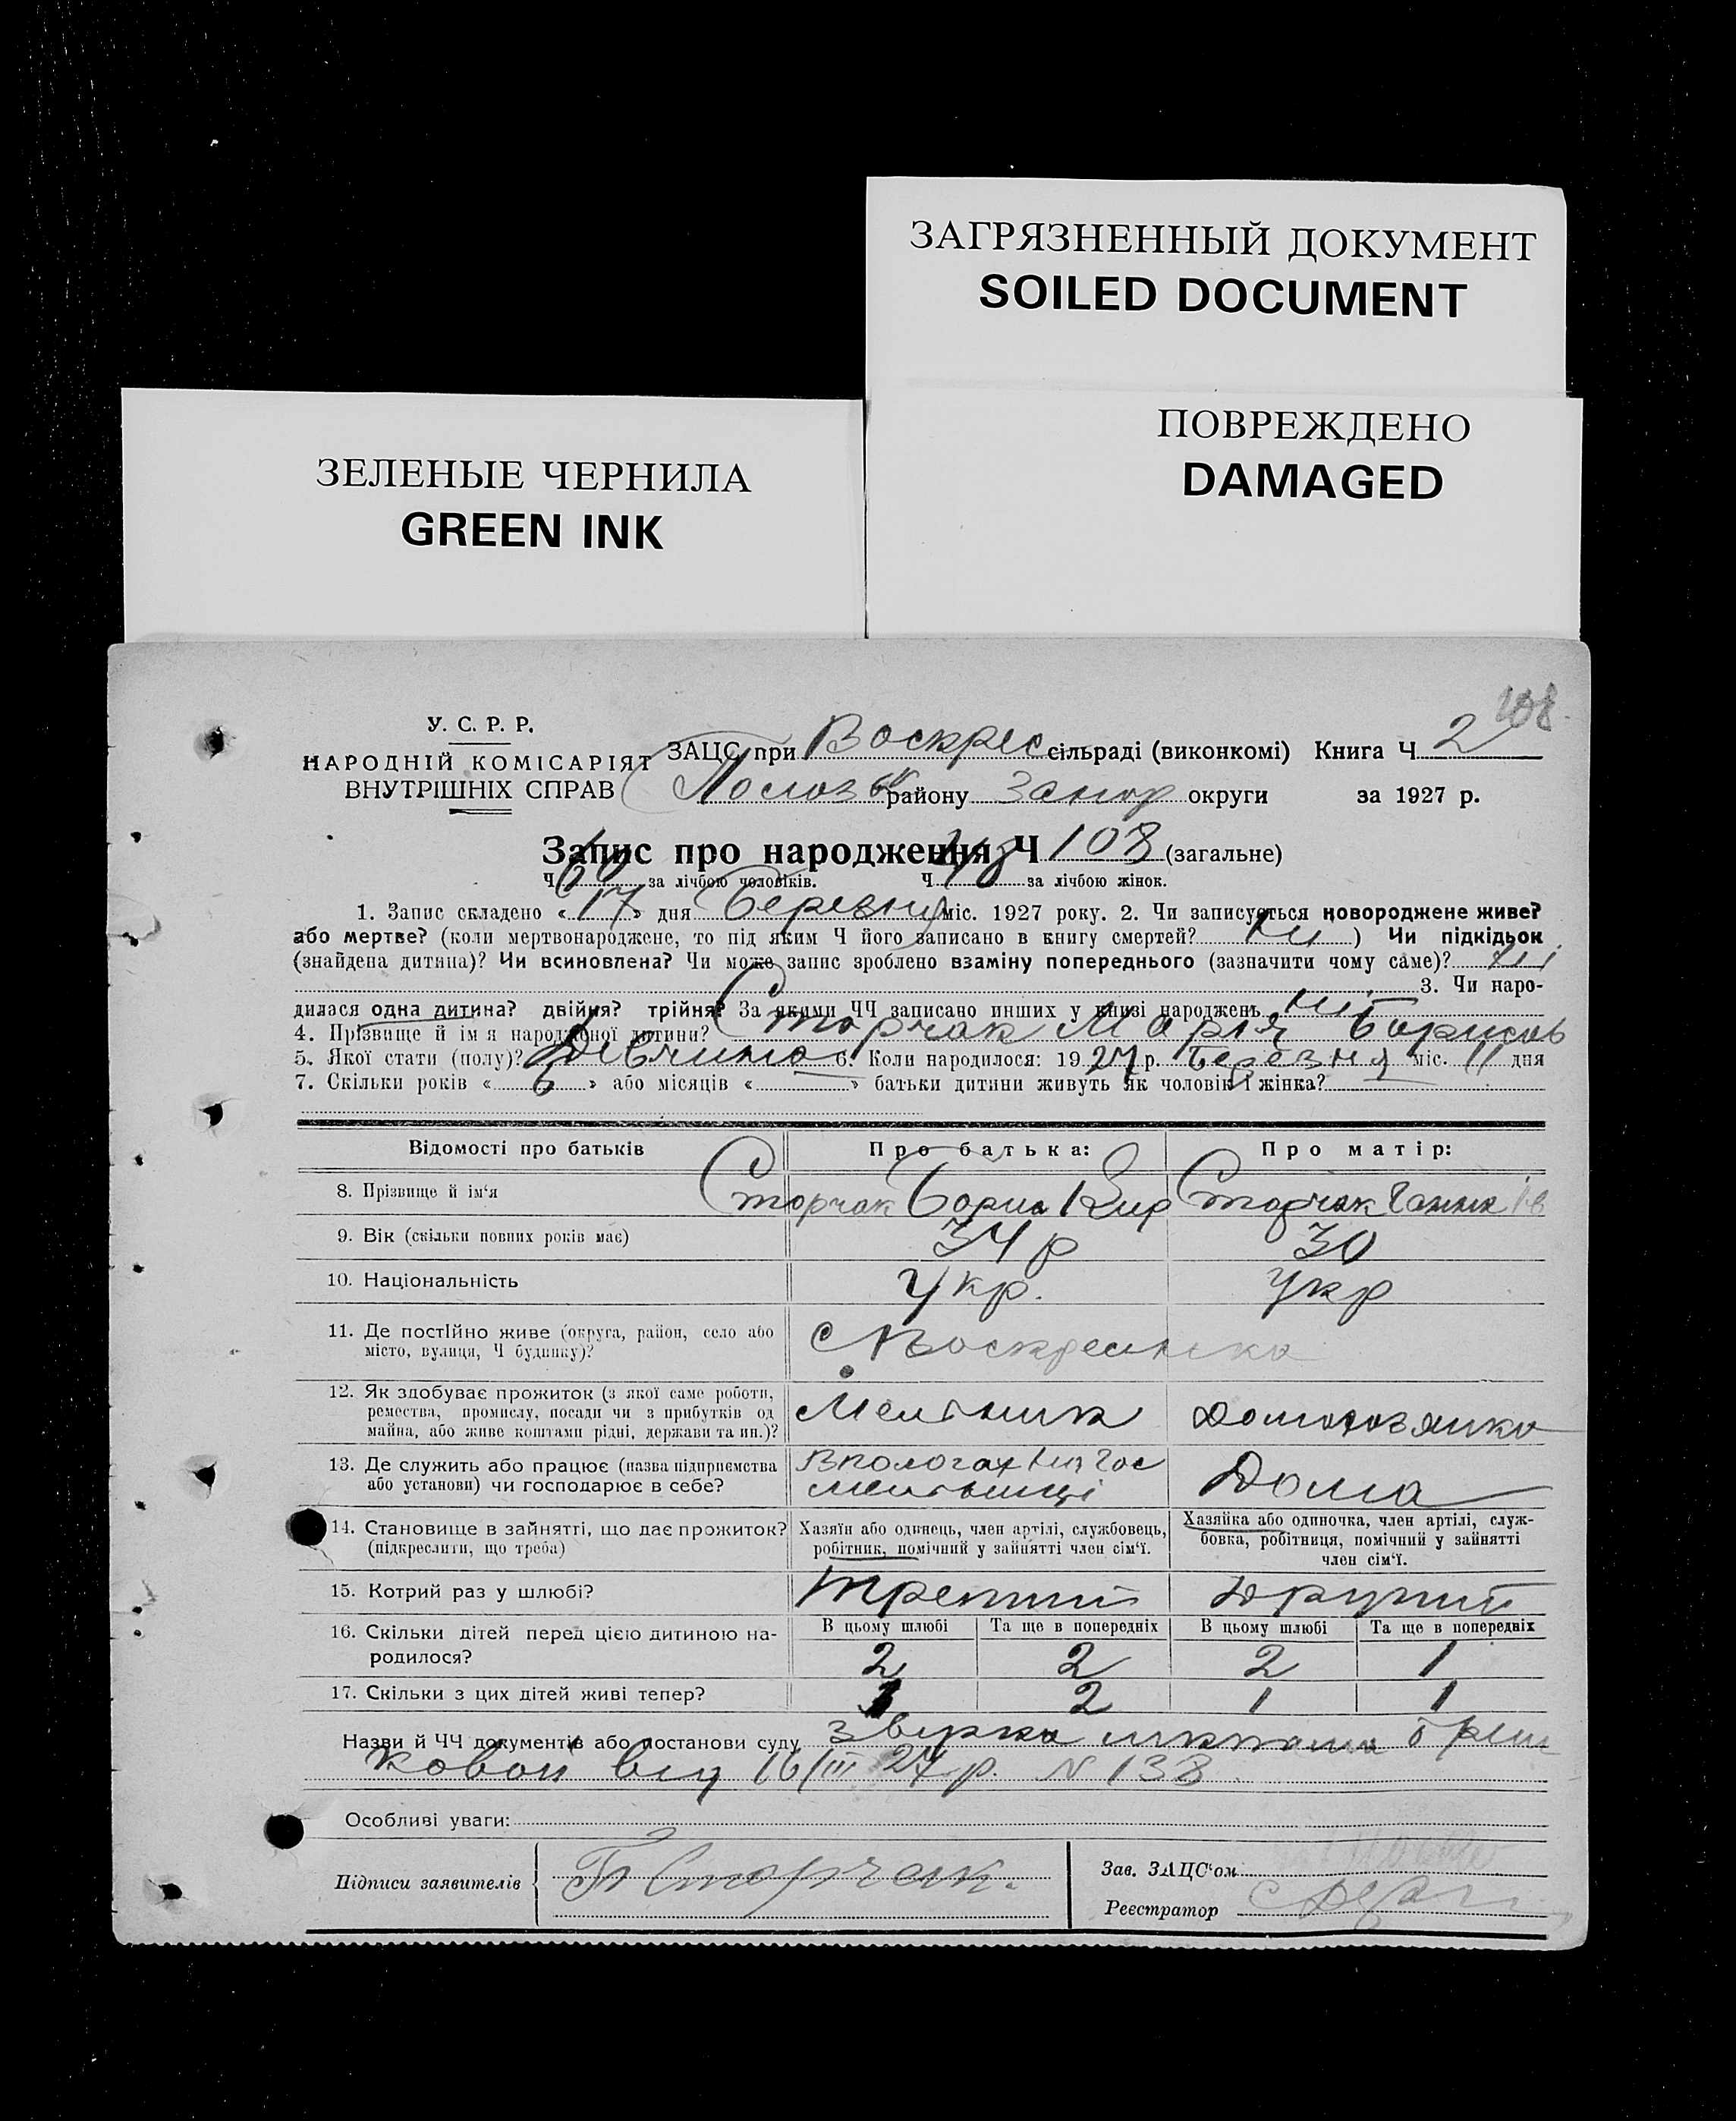 ЗАГРЯЗНЕННЫЙ ДОКУМЕНТ
SOILED DOCUMENT
ПОВРЕЖДЕНО
DAMAGED
ЗЕЛЕНЫЕ ЧЕРНИЛА
GREEN INK
108
У. С. Р. Р.
НАРОДНІЙ КОМІСАРІЯТ
ВНУТРІШНІХ СПРАВ
ЗАЦС при Воскрес сільраді (виконкомі) Книга Ч 2
району Запор округи за 1927 р.
Запис про народження Ч 108 (загальне)
Ч 60 за лічбою чоловіків. Ч 48 за лічбою жінок.
1. Запис складено «17» дня Березня міс. 1927 року. 2. Чи записується новороджене живе?
або мертве? (коли мертвонароджене, то під яким Ч його записано в книгу смертей? ) Чи підкідьок
(знайдена дитина)? Чи всиновлена? Чи може запис зроблено взаміну попереднього (зазначити чому саме)?
3. Чи наро-
дилася одна дитина? двійня? трійня? За якими ЧЧ записано инших у книзі народжень ніт
4. Прізвище й ім я народженої дитини? Сторчак Марія Борисов
5. Якої стати (полу)? Дівчина 6. Коли народилося: 1927 р. Березня міс. 11 дня
7. Скільки років « 6 » або місяців « — » батьки дитини живуть як чоловік і жінка? —
Відомості про батьків
Про батька:
Про матір:
8. Прізвище й ім'я Сторчак Борис Кир Сторчак Ганна Ів
9. Вік (скільки повних років має) 34 р 30
10. Національність Укр. Укр
11. Де постійно живе (округа, район, село або
місто, вулиця, Ч будинку)?
с Воскресенка
12. Як здобуває прожиток (з якої саме роботи,
ремества, промислу, посади чи з прибутків од
майна, або живе коштами рідні, держави та ин.)?
Мельник
Домохозяйка
13. Де служить або працює (назва підприємства
або установи) чи господарює в себе?
мельниці
Дома
14. Становище в зайнятті, що дає прожиток?
(підкреслити, що треба)
Хазяїн або одинець, член артілі, службовець,
робітник, помічний у зайнятті член сім'ї.
Хазяйка або одиночка, член артілі, служ-
бовка, робітниця, помічний у зайнятті
член сім'ї.
15. Котрий раз у шлюбі? Третий Другий
16. Скільки дітей перед цією дитиною на-
родилося?
В цьому шлюбі Та ще в попередніх В цьому шлюбі Та ще в попередніх
2 2 2 1
17. Скільки з цих дітей живі тепер? 1 2 1 1
Назви й ЧЧ документів або постанови суду
від 16/III 27 р. N 138
Особливі уваги:
Підписи заявителів Б Сторчак.
Зав. ЗАЦС'ом
Реєстратор